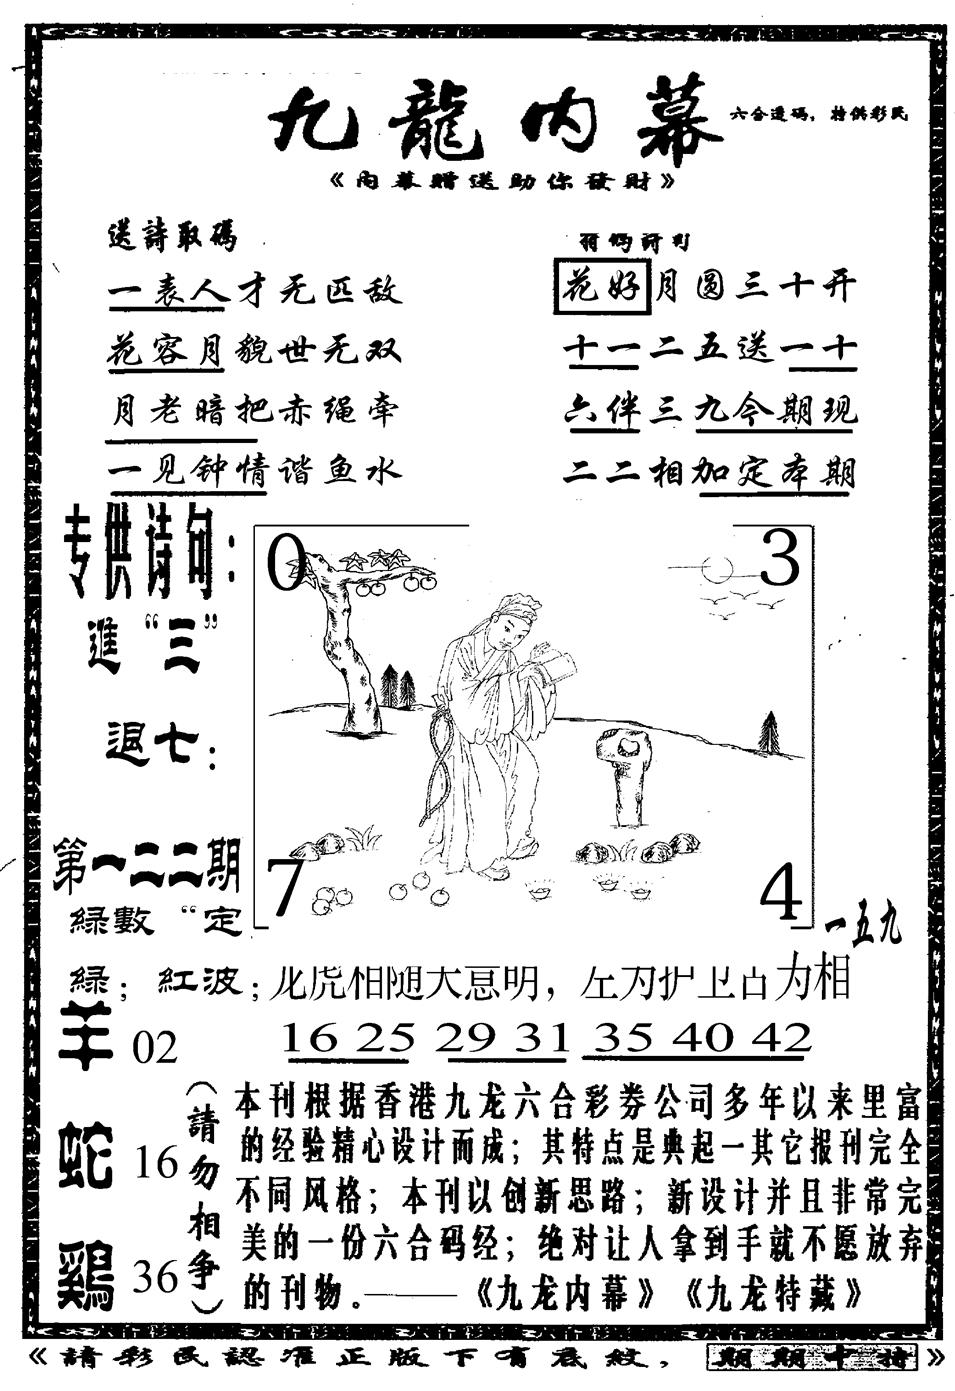 九龍内幕
六合透码，特供彩民
《内幕赠送助你發財》
送詩取碼
一表人才无匹敌
花容月貌世无双
月老暗把赤绳牵
一见钟情谐鱼水
花好月圆三十开
十一二五送一十
六伴三九今期现
二二相加定本期
专供诗句：
進“三”
退七：
第一二二期
緑數“定
緑；紅波；
0
3
7
4
一五九
龙虎相随大意明，左为护卫右为相
16 25 29 31 35 40 42
羊 02
蛇 16
鷄 36
（請勿相争）
本刊根据香港九龙六合彩券公司多年以来里富
的经验精心设计而成；其特点是典起一其它报刊完全
不同风格；本刊以创新思路；新设计并且非常完
美的一份六合码经；绝对让人拿到手就不愿放弃
的刊物。——《九龙内幕》《九龙特藏》
《請彩民認准正版下有底紋，期期中特》